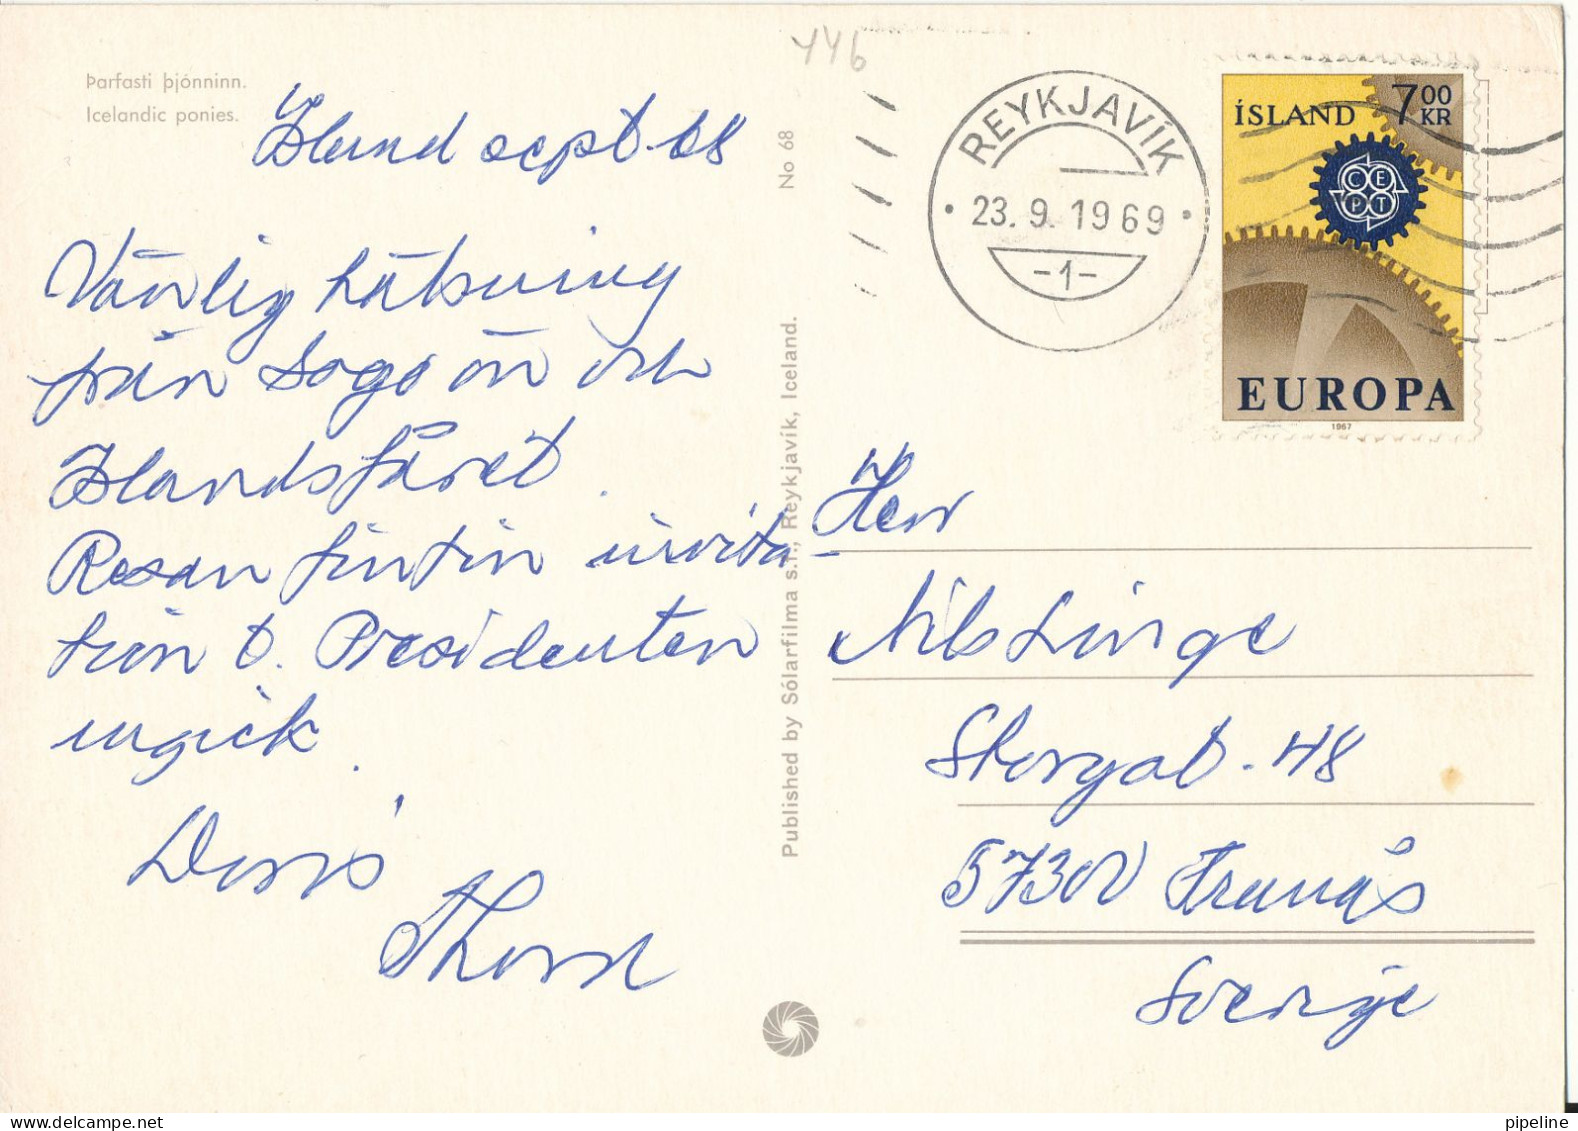 Þarfasti þjónninn.
Icelandic ponies.
Island sept. 68
Vänlig hälsning
från Sagoön och
Islandsfåret.
Resan fin fin
fin t. Presidenten
ingick.
Doris
Thord
No 68
Published by Sólarfilma s.f., Reykjavík, Iceland.
446
REYKJAVÍK
23. 9. 1969
-1-
ÍSLAND 7 00 KR
CEPT
EUROPA
1967
Herr
Nils Linge
Storgat. 48
57300 Tranås
Sverige
pipeline